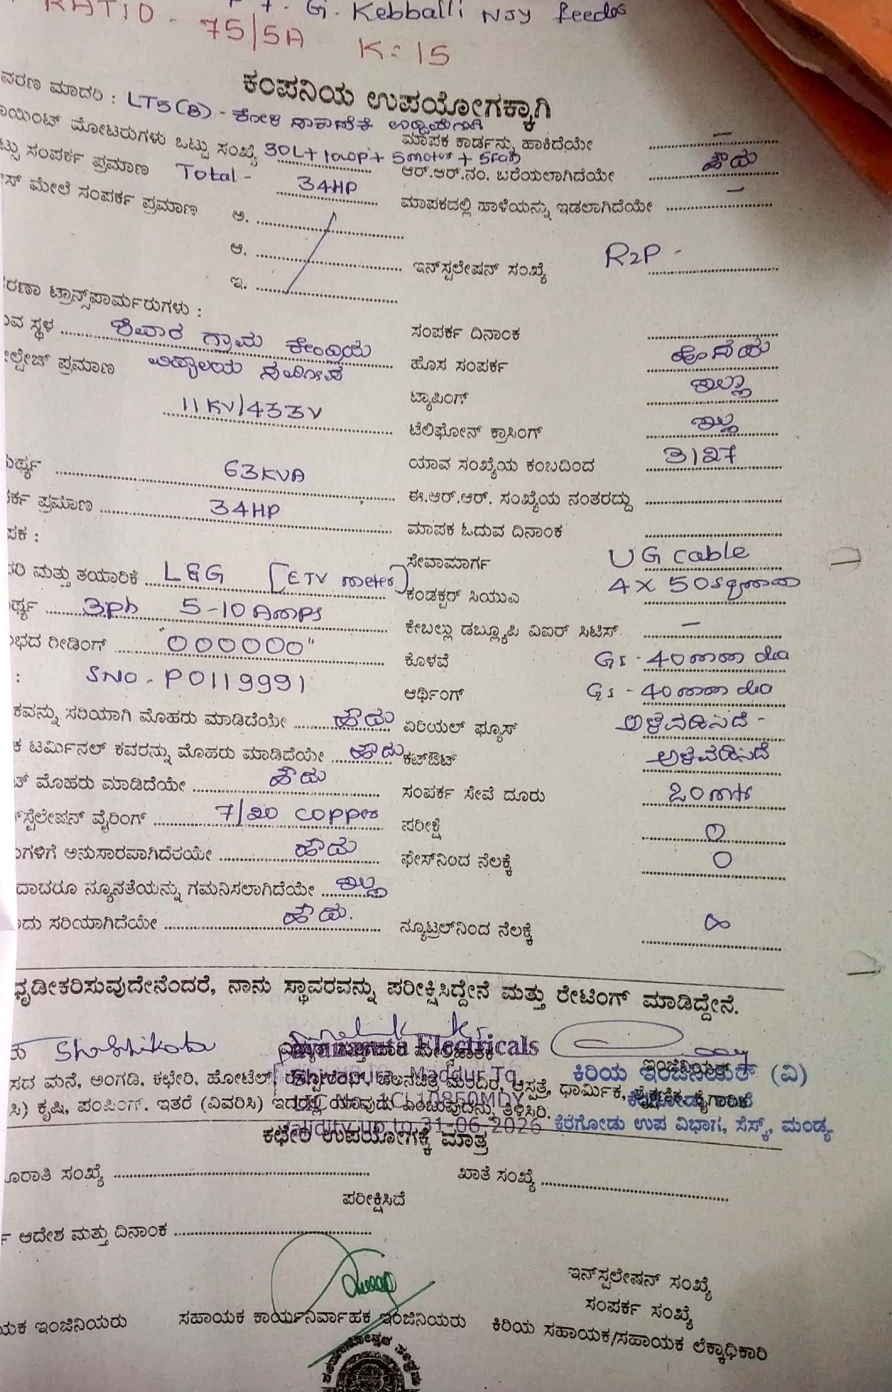 RATIO - 75/5A G. Kebballi NJY feeder
K = 15
ಕಂಪನಿಯ ಉಪಯೋಗಕ್ಕಾಗಿ
ವರಣ ಮಾದರಿ : LT5(B) -
ಮಾಪಕ ಕಾರ್ಡನ್ನು ಹಾಕಿದೆಯೇ –
ಯಿಂಟ್ ಮೋಟರುಗಳು ಒಟ್ಟು ಸಂಖ್ಯೆ 30L+ + 5motor + 5fan
ಆರ್.ಆರ್.ನಂ. ಬರೆಯಲಾಗಿದೆಯೇ ಹೌದು
ಟ್ಟು ಸಂಪರ್ಕ ಪ್ರಮಾಣ Total - 34HP
ಮಾಪಕದಲ್ಲಿ ಹಾಳೆಯನ್ನು ಇಡಲಾಗಿದೆಯೇ –
ಸ್ ಮೇಲೆ ಸಂಪರ್ಕ ಪ್ರಮಾಣ ಅ.
ಆ.
ಇನ್‌ಸ್ಟಲೇಷನ್ ಸಂಖ್ಯೆ R2P -
ಇ.
ರಣಾ ಟ್ರಾನ್ಸ್‌ಪಾರ್ಮರುಗಳು :
ಸಂಪರ್ಕ ದಿನಾಂಕ
ುವ ಸ್ಥಳ ಶಿವಾರ ಗ್ರಾಮ ಕೇಂದ್ರಿಯ
ಹೊಸ ಸಂಪರ್ಕ ಹೊಸದು
ೋಲ್ಟೇಜ್ ಪ್ರಮಾಣ ವಿದ್ಯಾಲಯ ಸಮೀಪ
ಟ್ಯಾಪಿಂಗ್ ಇಲ್ಲಾ
11KV/433V
ಟೆಲಿಫೋನ್ ಕ್ರಾಸಿಂಗ್ ಇಲ್ಲ
ಮರ್ಥ್ಯ 63KVA
ಯಾವ ಸಂಖ್ಯೆಯ ಕಂಬದಿಂದ 3127
ರ್ಕ ಪ್ರಮಾಣ 34HP
ಈ.ಆರ್.ಆರ್. ಸಂಖ್ಯೆಯ ನಂತರದ್ದು
ಪಕ :
ಮಾಪಕ ಓದುವ ದಿನಾಂಕ
ರಿ ಮತ್ತು ತಯಾರಿಕೆ L&G [ETV meter]
ಸೇವಾಮಾರ್ಗ UG cable
ರ್ಥ್ಯ 3ph 5-10Amps
ಕಂಡಕ್ಟರ್ ಸಿಯುಎ 4 X 50sqmm
ಭದ ಗೀಡಿಂಗ್ "000000"
ಕೇಬಲ್ಲು ಡಬ್ಲ್ಯೂಪಿ ವಿಐರ್ ಸಿಟಿಸ್. –
: SNO - P0119991
ಕೊಳವೆ GI - 40mm dia
ಆರ್ಥಿಂಗ್ GI - 40mm dia
ಕವನ್ನು ಸರಿಯಾಗಿ ಮೊಹರು ಮಾಡಿದೆಯೇ ಹೌದು
ಏರಿಯಲ್ ಫ್ಯೂಸ್ ಅಳವಡಿಸಿದೆ -
ಕ ಟರ್ಮಿನಲ್ ಕವರನ್ನು ಮೊಹರು ಮಾಡಿದೆಯೇ ಹೌದು
ಕಟ್‌ಔಟ್ ಅಳವಡಿಸಿದೆ
ಟ್ ಮೊಹರು ಮಾಡಿದೆಯೇ ಹೌದು
ಸಂಪರ್ಕ ಸೇವೆ ದೂರು 20mtr
‌ಸ್ಟೆಲೇಷನ್ ವೈರಿಂಗ್ 7/20 copper
ಪರೀಕ್ಷೆ 0
ುಗಳಿಗೆ ಅನುಸಾರವಾಗಿದೆರಯೇ ಹೌದು
ಫೇಸ್‌ನಿಂದ ನೆಲಕ್ಕೆ 0
ದಾಬರೂ ನ್ಯೂನತೆಯನ್ನು ಗಮನಿಸಲಾಗಿದೆಯೇ ಇಲ್ಲ
ದು ಸರಿಯಾಗಿದೆಯೇ ಹೌದು.
ನ್ಯೂಟ್ರಲ್‌ನಿಂದ ನೆಲಕ್ಕೆ ∞
ಧೃಡೀಕರಿಸುವುದೇನೆಂದರೆ, ನಾನು ಸ್ಥಾವರವನ್ನು ಪರೀಕ್ಷಿಸಿದ್ದೇನೆ ಮತ್ತು ರೇಟಿಂಗ್ ಮಾಡಿದ್ದೇನೆ.
Electricals
ಕಿರಿಯ ಇಂಜಿನಿಯರ್ (ವಿ)
Shivapura, Maddur Tq.
ಸದ ಮನೆ, ಅಂಗಡಿ, ಕಛೇರಿ, ಹೋಟೆಲ್, ಆಸ್ಪತ್ರೆ, ಧಾರ್ಮಿಕ, ಕೈಗಾರಿಕೆ
ಸಿ) ಕೃಷಿ, ಪಂಪಿಂಗ್. ಇತರೆ (ವಿವರಿಸಿ) ಇದರಲ್ಲಿ ಯಾವುದು ಎಂಬುವುದನ್ನು ತಿಳಿಸಿರಿ.
Validity up to 31-06-2026
ಕೆರಗೋಡು ಉಪ ವಿಭಾಗ, ಸೆಸ್ಕ್, ಮಂಡ್ಯ
ಕಛೇರಿ ಉಪಯೋಗಕ್ಕೆ ಮಾತ್ರ
ೂರಾತಿ ಸಂಖ್ಯೆ
ಖಾತೆ ಸಂಖ್ಯೆ
ಪರೀಕ್ಷಿಸಿದೆ
ಆದೇಶ ಮತ್ತು ದಿನಾಂಕ
ಇನ್‌ಸ್ಟಲೇಷನ್ ಸಂಖ್ಯೆ
ಸಂಪರ್ಕ ಸಂಖ್ಯೆ
ಯಕ ಇಂಜಿನಿಯರು ಸಹಾಯಕ ಕಾರ್ಯನಿರ್ವಾಹಕ ಇಂಜಿನಿಯರು ಕಿರಿಯ ಸಹಾಯಕ/ಸಹಾಯಕ ಲೆಕ್ಕಾಧಿಕಾರಿ